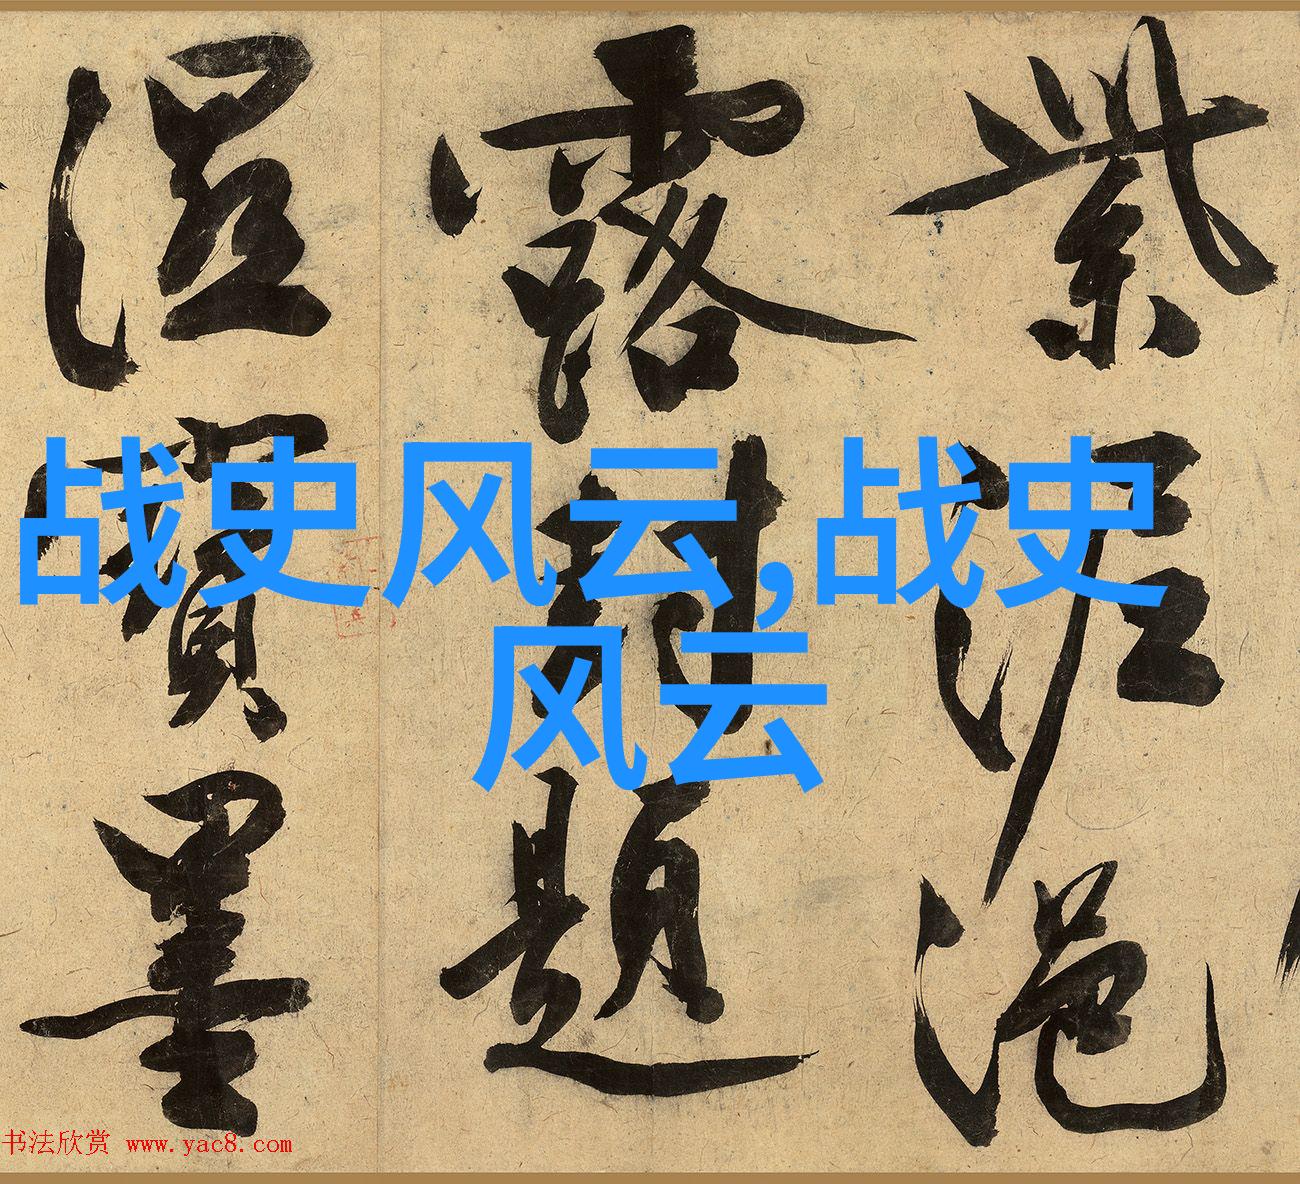 紫泥浥
露封題
濕寶墨
战史风云,战史
风云
书法欣赏 www.yac8.com